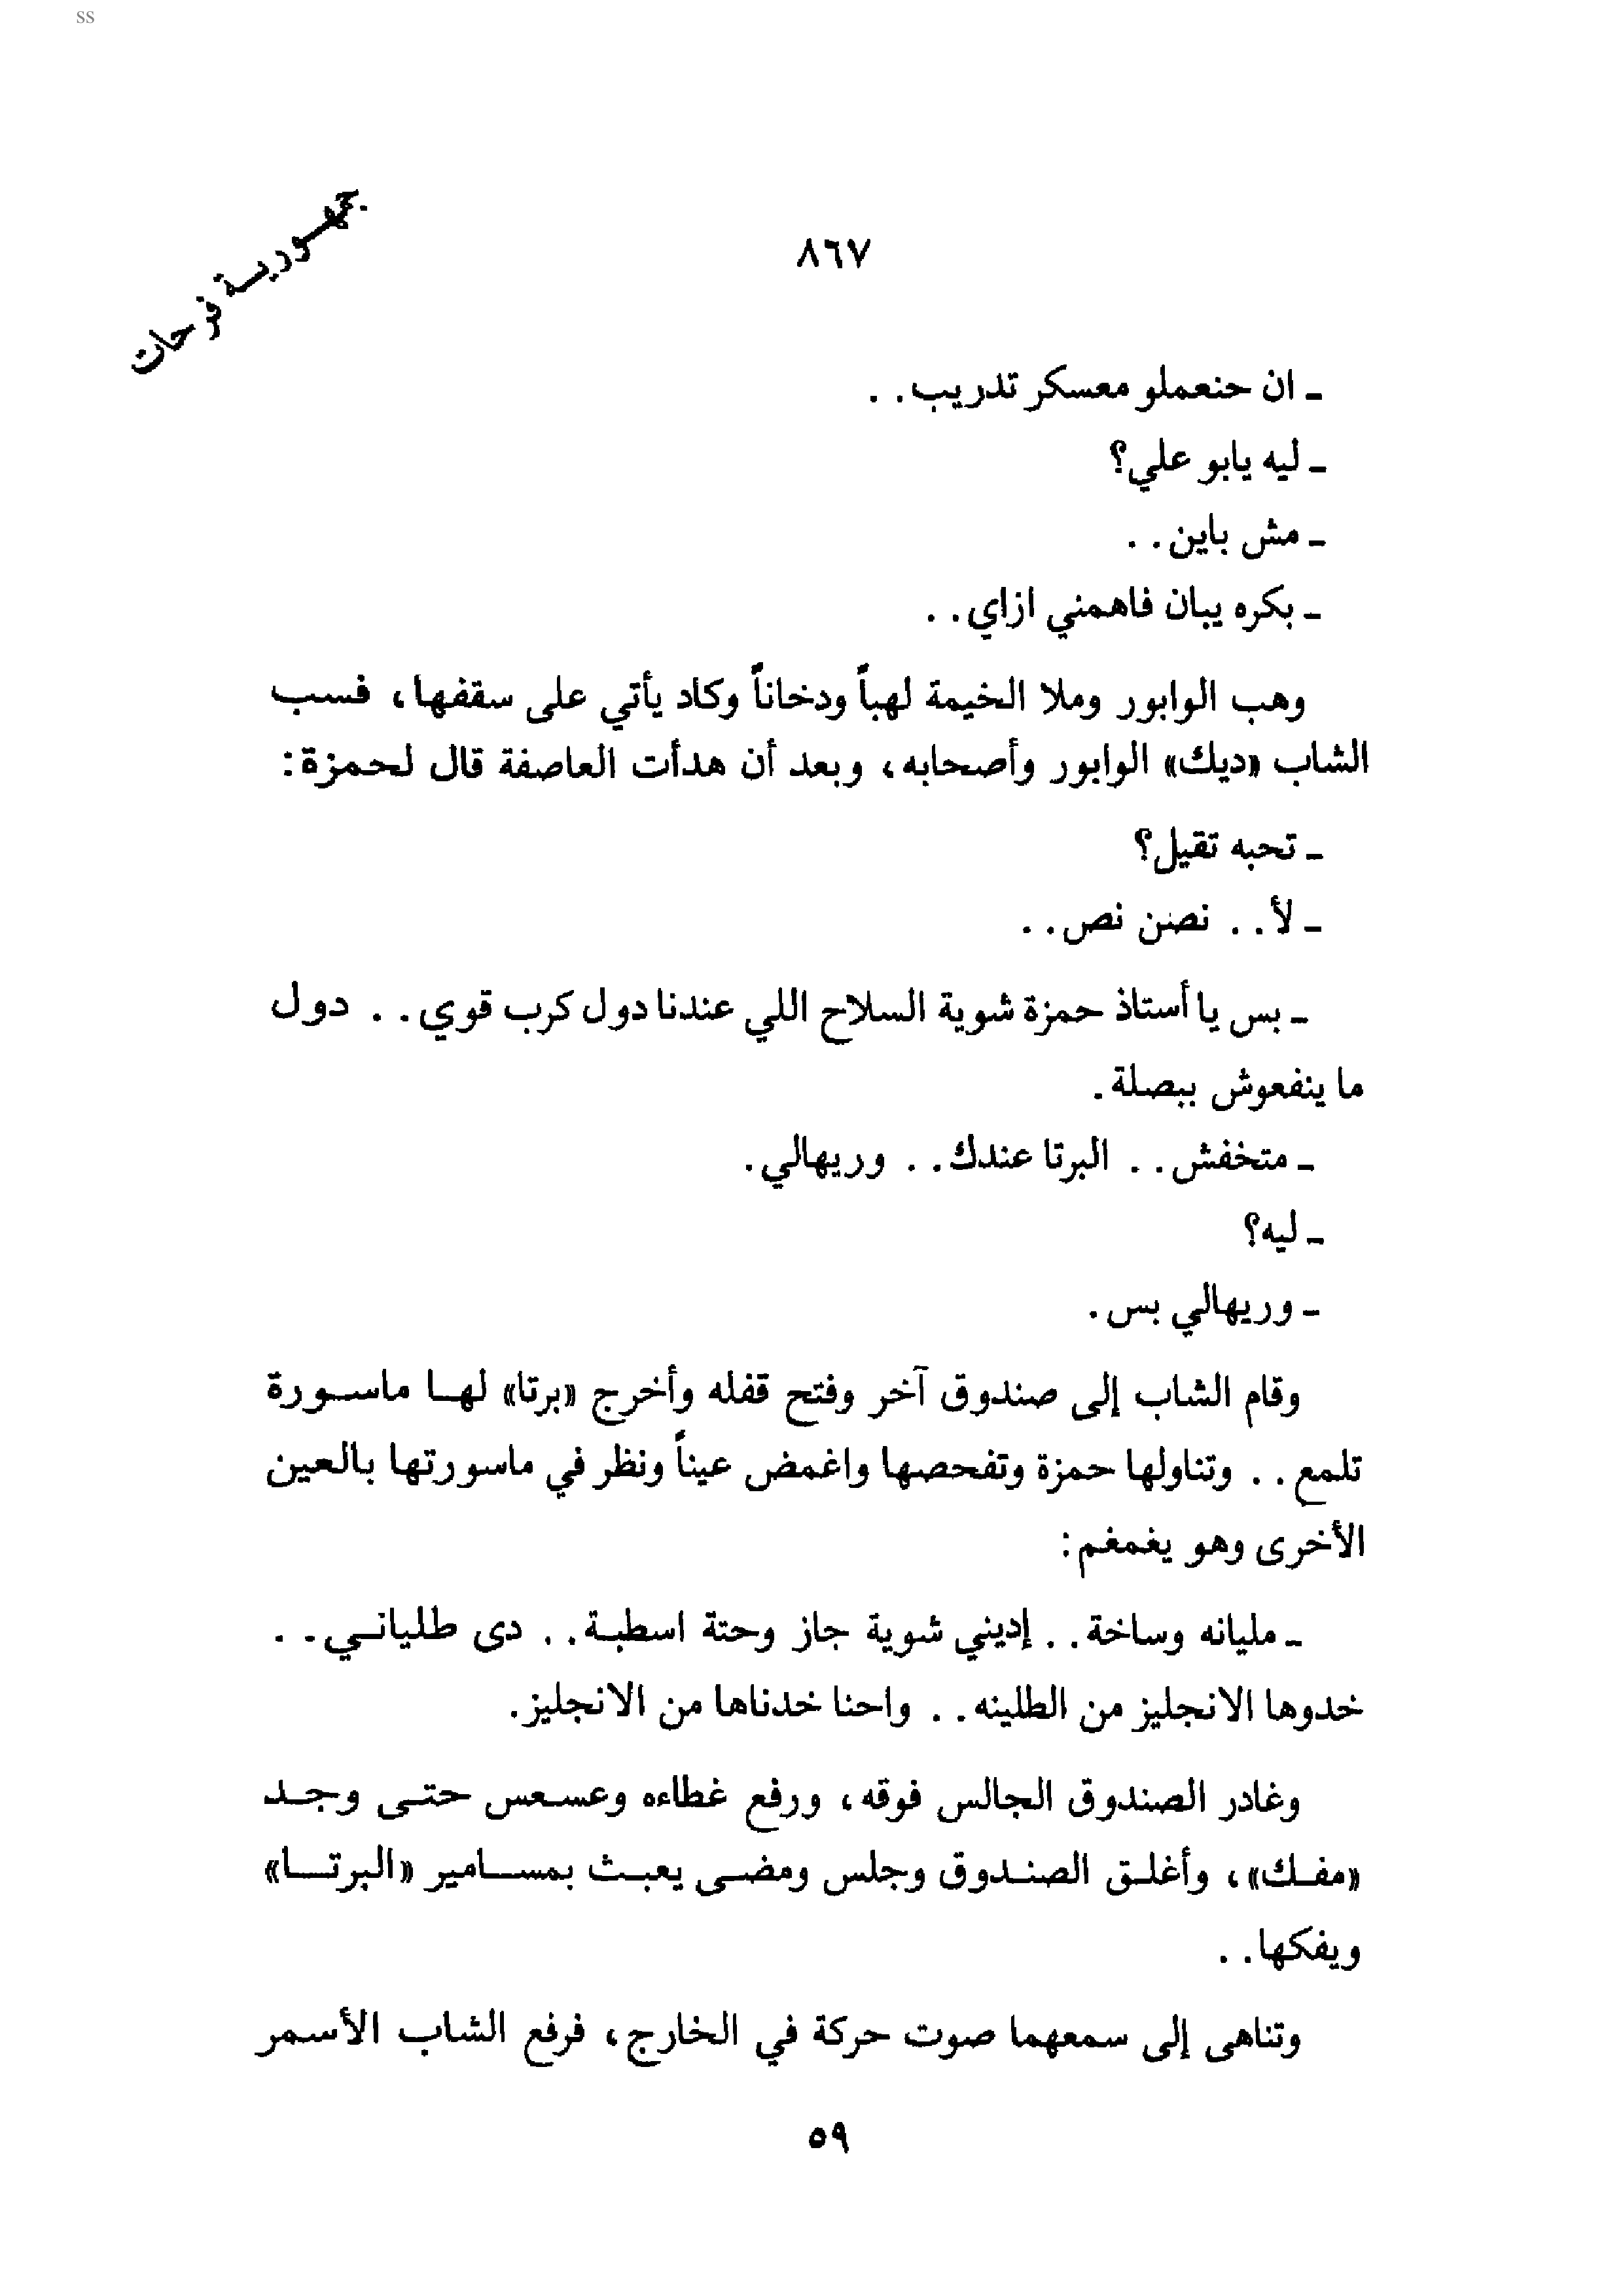 ss
جمهورية فرحات
٨٦٧
ـ ان حنعملو معسكر تدريب . .
ـ ليه يابو علي؟
ـ مش باين . .
ـ بكره يبان فاهمني ازاي . .
وهب الوابور وملا الخيمة لهباً ودخاناً وكاد يأتي على سقفها، فسب
الشاب «ديك» الوابور وأصحابه، وبعد أن هدأت العاصفة قال لحمزة:
ـ تحبه تقيل؟
ـ لأ . . نصن نص . .
ـ بس يا أستاذ حمزة شوية السلاح اللي عندنا دول كرب قوي . . دول
ما ينفعوش ببصلة .
ـ متخفش . . البرتا عندك . . وريهالي .
ـ ليه؟
ـ وريهالي بس .
وقام الشاب إلى صندوق آخر وفتح قفله وأخرج «برتا» لها ماسورة
تلمع . . وتناولها حمزة وتفحصها واغمض عيناً ونظر في ماسورتها بالعين
الأخرى وهو يغمغم:
ـ مليانه وساخة . . إديني شوية جاز وحتة اسطبة . . دى طلياني . .
خدوها الانجليز من الطلينه . . واحنا خدناها من الانجليز .
وغادر الصندوق الجالس فوقه، ورفع غطاءه وعسعس حتى وجد
«مفك»، وأغلق الصندوق وجلس ومضى يعبث بمسامير «البرتا»
ويفكها . .
وتناهى إلى سمعهما صوت حركة في الخارج، فرفع الشاب الأسمر
٥٩